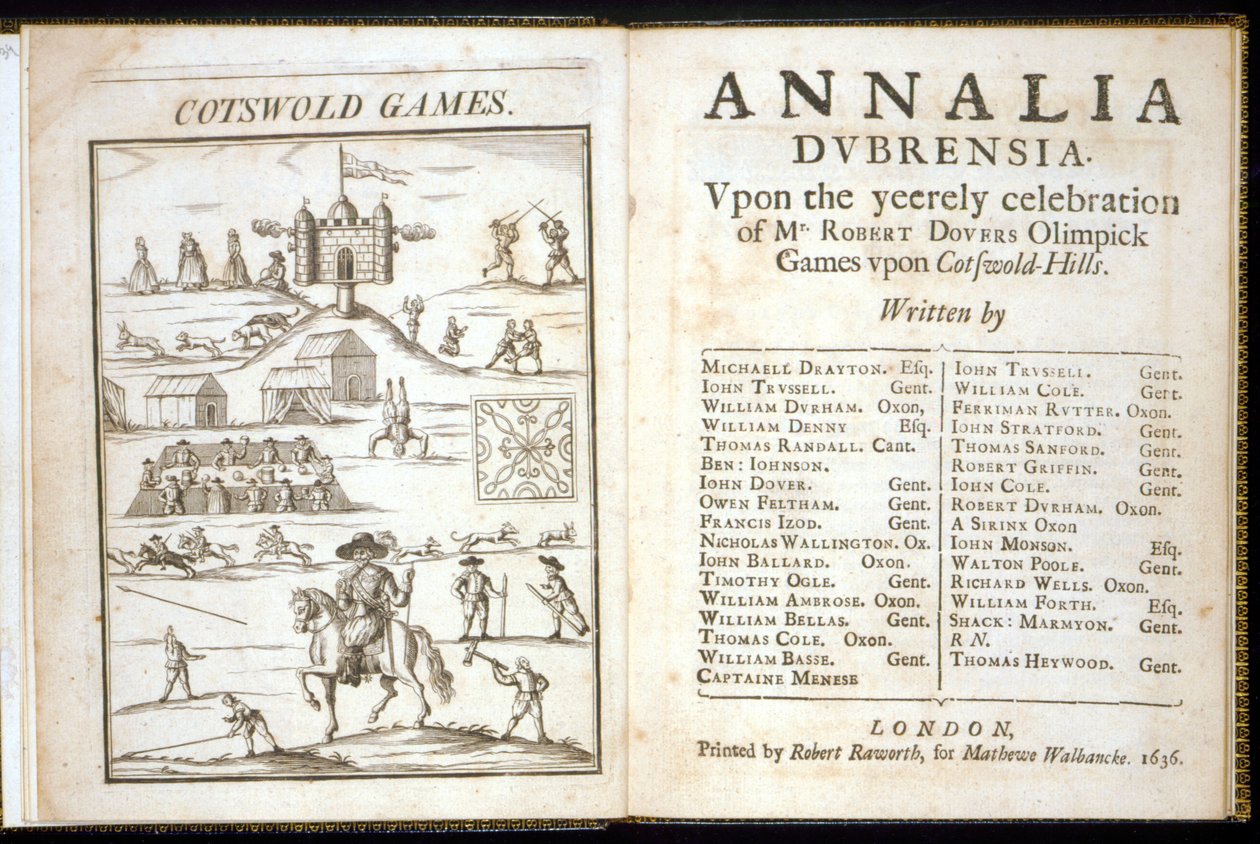 COTSWOLD GAMES.
ANNALIA
DVBRENSIA.
Vpon the yeerely celebration
of Mr. ROBERT DOVERS Olimpick
Games vpon Cotſwold-Hills.
Written by
MICHAELL DRAYTON. Eſq.
IOHN TRVSSELL. Gent.
WILLIAM DVRHAM. Oxon,
WILLIAM DENNY Eſq.
THOMAS RANDALL. Cant.
BEN: IOHNSON.
IOHN DOVER. Gent.
OWEN FELTHAM. Gent.
FRANCIS IZOD. Gent.
NICHOLAS WALLINGTON. Ox.
IOHN BALLARD. Oxon.
TIMOTHY OGLE. Gent.
WILLIAM AMBROSE. Oxon.
WILLIAM BELLAS. Gent.
THOMAS COLE. Oxon.
WILLIAM BASSE. Gent.
CAPTAINE MENESE
IOHN TRVSSELL. Gent.
WILLIAM COLE. Gent.
FERRIMAN RVTTER. Oxon.
IOHN STRATFORD. Gent.
THOMAS SANFORD. Gent.
ROBERT GRIFFIN. Gent.
IOHN COLE. Gent.
ROBERT DVRHAM. Oxon.
A SIRINX Oxon
IOHN MONSON. Eſq.
WALTON POOLE. Gent.
RICHARD WELLS. Oxon.
WILLIAM FORTH. Eſq.
SHACK: MARMYON. Gent.
R N.
THOMAS HEYWOOD. Gent.
LONDON,
Printed by Robert Raworth, for Mathewe Walbancke. 1636.